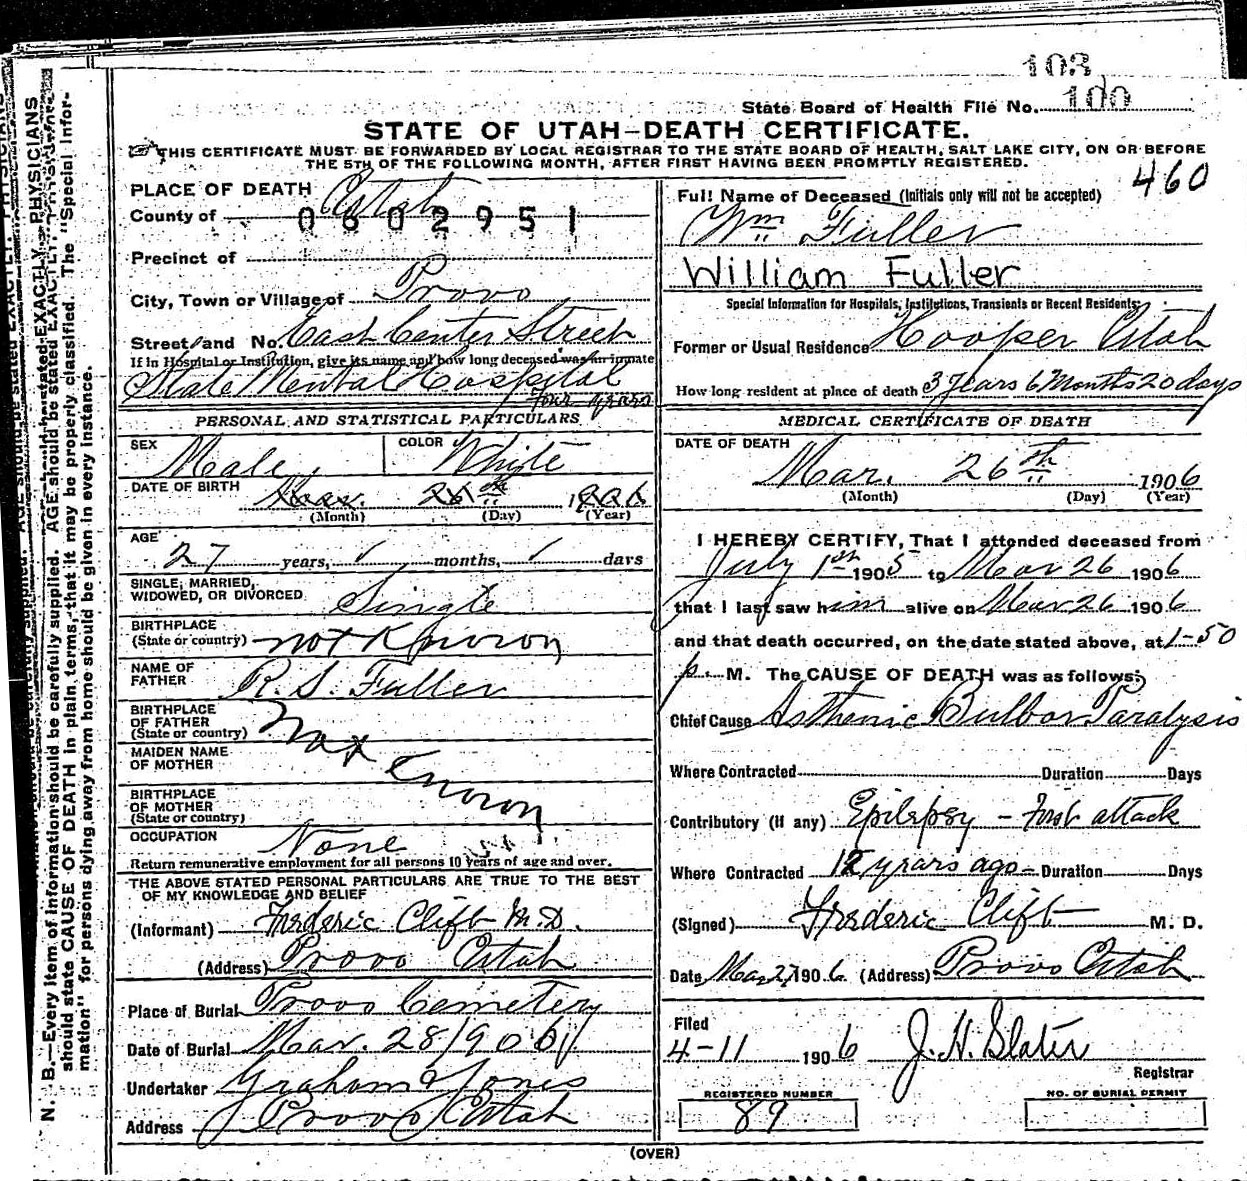 103
State Board of Health File No. 100
STATE OF UTAH—DEATH CERTIFICATE.
THIS CERTIFICATE MUST BE FORWARDED BY LOCAL REGISTRAR TO THE STATE BOARD OF HEALTH, SALT LAKE CITY, ON OR BEFORE
THE 5TH OF THE FOLLOWING MONTH, AFTER FIRST HAVING BEEN PROMPTLY REGISTERED.
460
PLACE OF DEATH
County of Utah
0602951
Precinct of
City, Town or Village of Provo
Street and No. East Center Street
If in Hospital or Institution, give its name and how long deceased was an inmate
State Mental Hospital
four years
PERSONAL AND STATISTICAL PARTICULARS
SEX Male COLOR White
DATE OF BIRTH Mar. 26th
(Month) (Day) (Year)
AGE 27 years, months, days
SINGLE, MARRIED,
WIDOWED, OR DIVORCED Single
BIRTHPLACE
(State or country) not Known
NAME OF
FATHER R. S. Fuller
BIRTHPLACE
OF FATHER
(State or country) Not Known
MAIDEN NAME
OF MOTHER
BIRTHPLACE
OF MOTHER
(State or country)
OCCUPATION None
Return remunerative employment for all persons 10 years of age and over.
THE ABOVE STATED PERSONAL PARTICULARS ARE TRUE TO THE BEST
OF MY KNOWLEDGE AND BELIEF
(Informant) Frederic Clift M.D.
(Address) Provo Utah
Place of Burial Provo Cemetery
Date of Burial Mar. 28 1906
Undertaker Graham & Jones
Address Provo Utah
Full Name of Deceased (Initials only will not be accepted)
Wm Fuller
William Fuller
Special Information for Hospitals, Institutions, Transients or Recent Residents:
Former or Usual Residence Hooper Utah
How long resident at place of death 3 Years 6 Months 20 days
MEDICAL CERTIFICATE OF DEATH
DATE OF DEATH
Mar. 26th 1906
(Month) (Day) (Year)
I HEREBY CERTIFY, That I attended deceased from
July 1st 1905 to Mar 26 1906
that I last saw him alive on Mar 26 1906
and that death occurred, on the date stated above, at 1-50
p. M. The CAUSE OF DEATH was as follows:
Chief Cause Asthenic Bulbar Paralysis
Where Contracted Duration Days
Contributory (If any) Epilepsy – First attack
Where Contracted 12 years ago – Duration Days
(Signed) Frederic Clift M. D.
Date Mar 27 1906 (Address) Provo Utah
Filed
4-11 1906 J. H. Slater
Registrar
REGISTERED NUMBER
89
NO. OF BURIAL PERMIT
(OVER)
N. B.—Every item of information should be carefully supplied. AGE should be stated EXACTLY. PHYSICIANS
should state CAUSE OF DEATH in plain terms, that it may be properly classified. The "Special Infor-
mation" for persons dying away from home should be given in every instance.